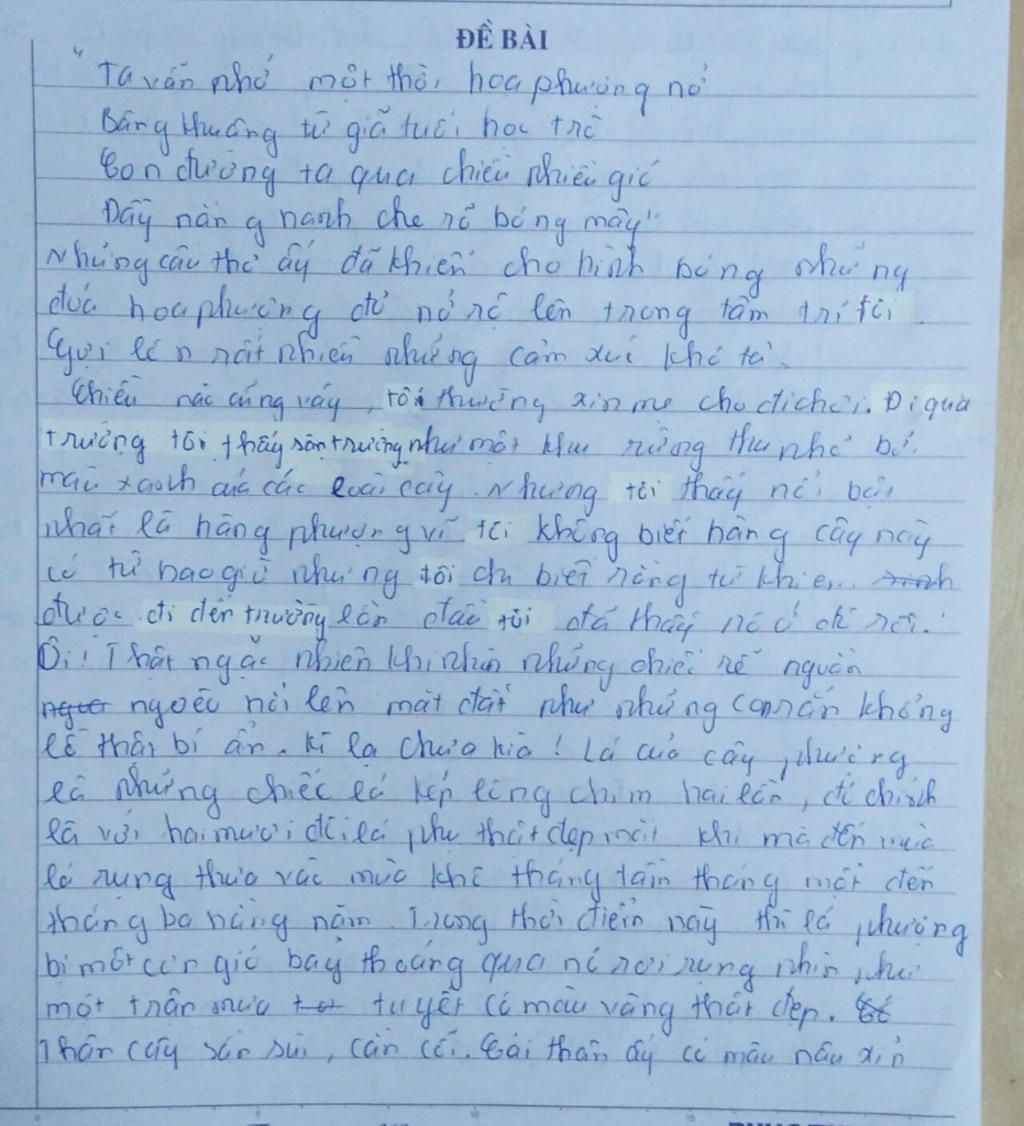 ĐỀ BÀI
"Ta vẫn nhớ một thời hoa phượng nở
Bâng khuâng từ giã tuổi học trò
Con đường ta qua chiều nhiều gió
Dãy nàng hanh che rõ bóng mây"
Những câu thơ ấy đã khiến cho hình bóng những
đoá hoa phượng đỏ nở rộ lên trong tâm trí tôi.
Gợi lên rất nhiều những cảm xúc khó tả.
Chiều nào cũng vậy, tôi thường xin mẹ cho đi chơi. Đi qua
trường tôi thấy sân trường như một khu rừng thu nhỏ bởi
màu xanh của các loài cây. Nhưng tôi thấy nổi bật
nhất là hàng phượng vĩ. Tôi không biết hàng cây này
có từ bao giờ nhưng tôi chỉ biết rằng từ khi em
được đi đến trường lần đầu tôi đã thấy nó ở đó rồi.
Ôi! Thật ngạc nhiên khi nhìn những chiếc rễ nguồn
ngoèo nổi lên mặt đất như những con rắn khổng
lồ thật bí ẩn. Kì lạ chưa kìa! Lá của cây phượng
là những chiếc lá kép lông chim hai lần, đó chính
là với hai mươi đôi lá phụ thật đẹp mắt. Khi mà đến mùa
lá rụng thưa vào mùa khô tháng tám tháng một đến
tháng ba hàng năm. Trong thời điểm này thì lá phượng
bị một cơn gió bay thoáng qua nó rơi rụng nhìn như
một trận mưa tuyết có màu vàng thật đẹp.
Thân cây sần sùi, cằn cỗi. Cái thân ấy có màu nâu xỉn